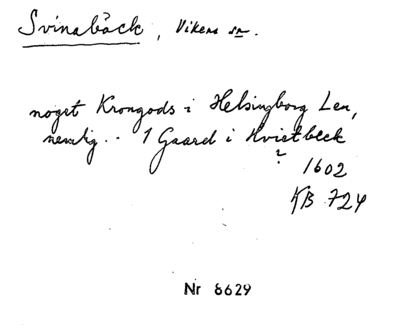 Svinabäck, Vikens sn.
noget Krongods i Helsingborg Len,
nemlig .. 1 Gaard i Hvietbeck
?
1602
KB 724
Nr 6629